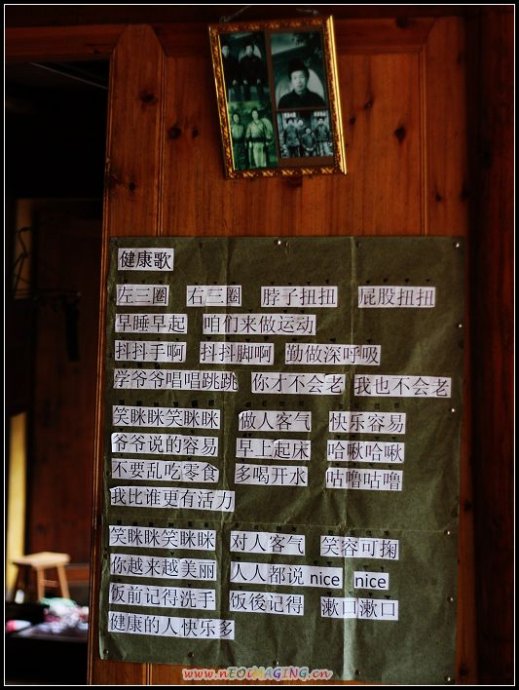 健康歌
左三圈 右三圈 脖子扭扭 屁股扭扭
早睡早起 咱们来做运动
抖抖手啊 抖抖脚啊 勤做深呼吸
学爷爷唱唱跳跳 你才不会老 我也不会老
笑眯眯笑眯眯 做人客气 快乐容易
爷爷说的容易 早上起床 哈啾哈啾
不要乱吃零食 多喝开水 咕噜咕噜
我比谁更有活力
笑眯眯笑眯眯 对人客气 笑容可掬
你越来越美丽 人人都说 nice nice
饭前记得洗手 饭後记得 漱口漱口
健康的人快乐多
www.nEOiMAGING.cn